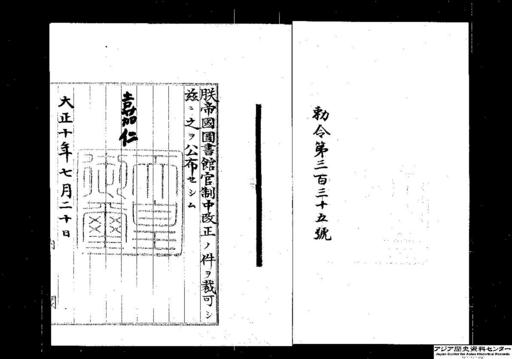 勅令第三百三十五號
朕帝國圖書館官制中改正ノ件ヲ裁可シ
茲ニ之ヲ公布セシム
嘉仁
大正十年七月二十日
アジア歴史資料センター
Japan Center for Asian Historical Records